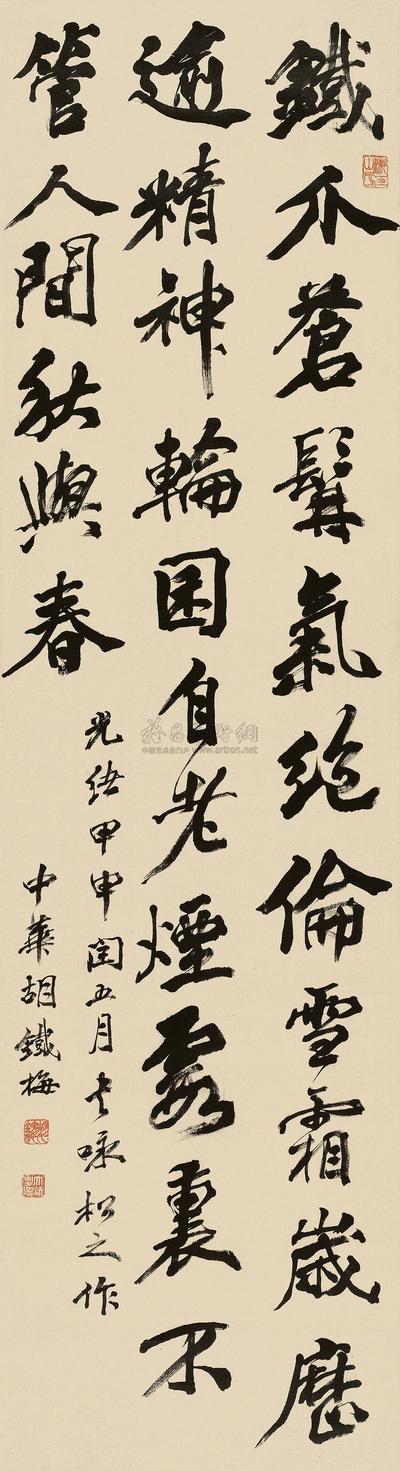 鐵爪蒼髯氣絶倫雪霜歲歷
逾精神輪囷自老煙霞裏不
管人間秋與春
光緒甲申閏五月書咏松之作
中華胡鐵梅
www.artron.net